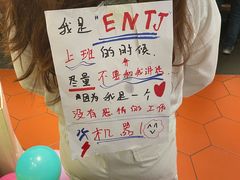 我是"ENTJ"
上班的时候
尽量不要和我讲话
因为我是一个
没有感情的工作
机器！